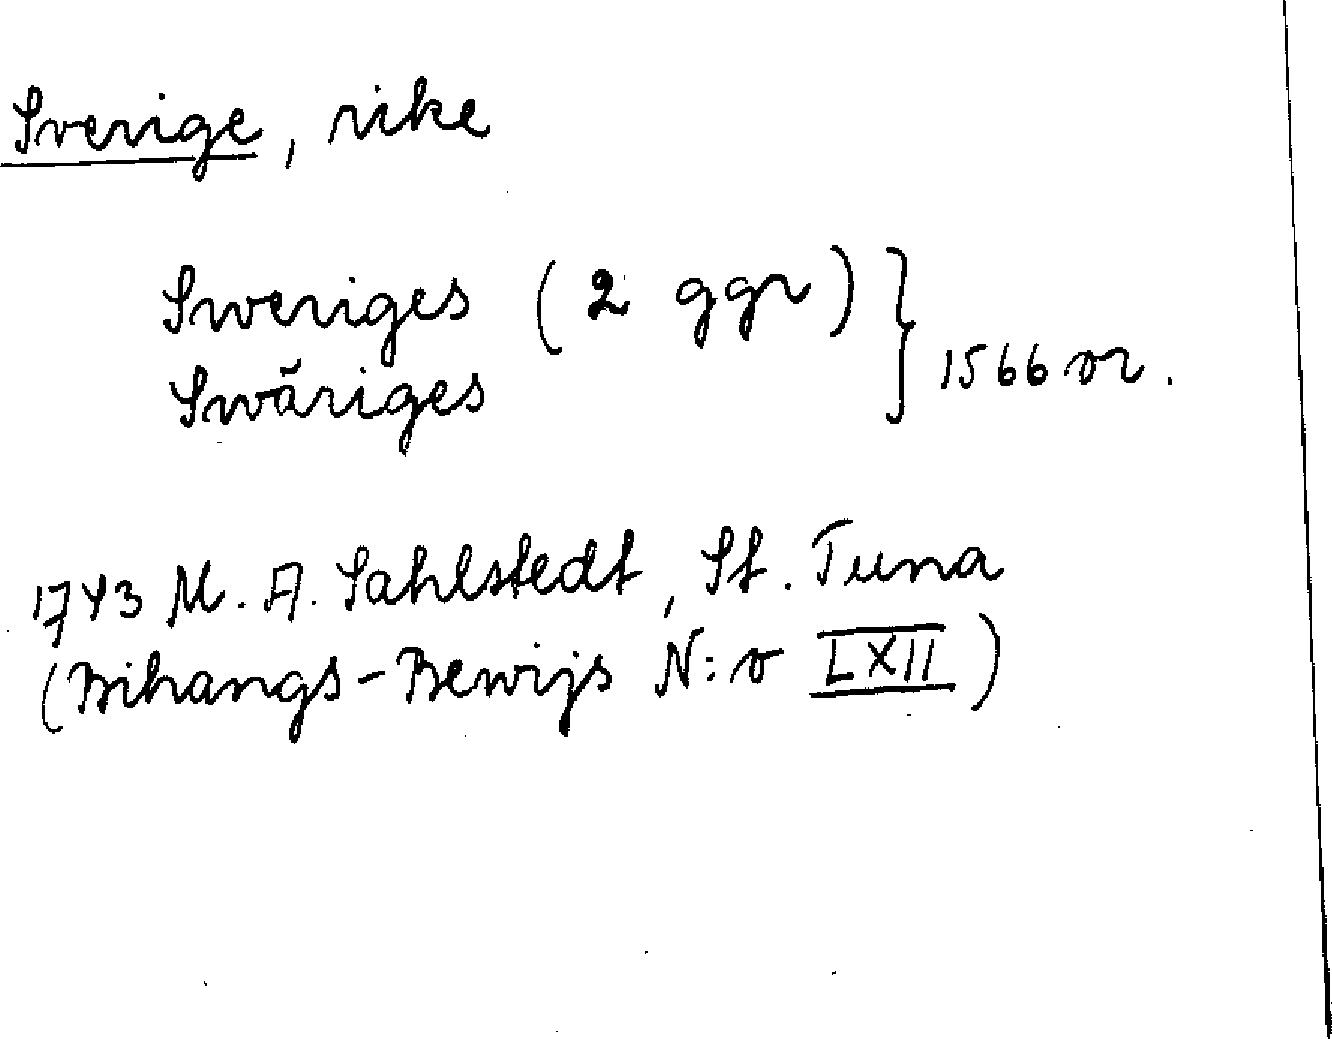 Sverige, rike
Sweriges (2 ggr)
Swäriges
} 1566 or.
1743 M. A. Sahlstedt, St. Tuna
(Bihangs-Bewijs N:o LXII)